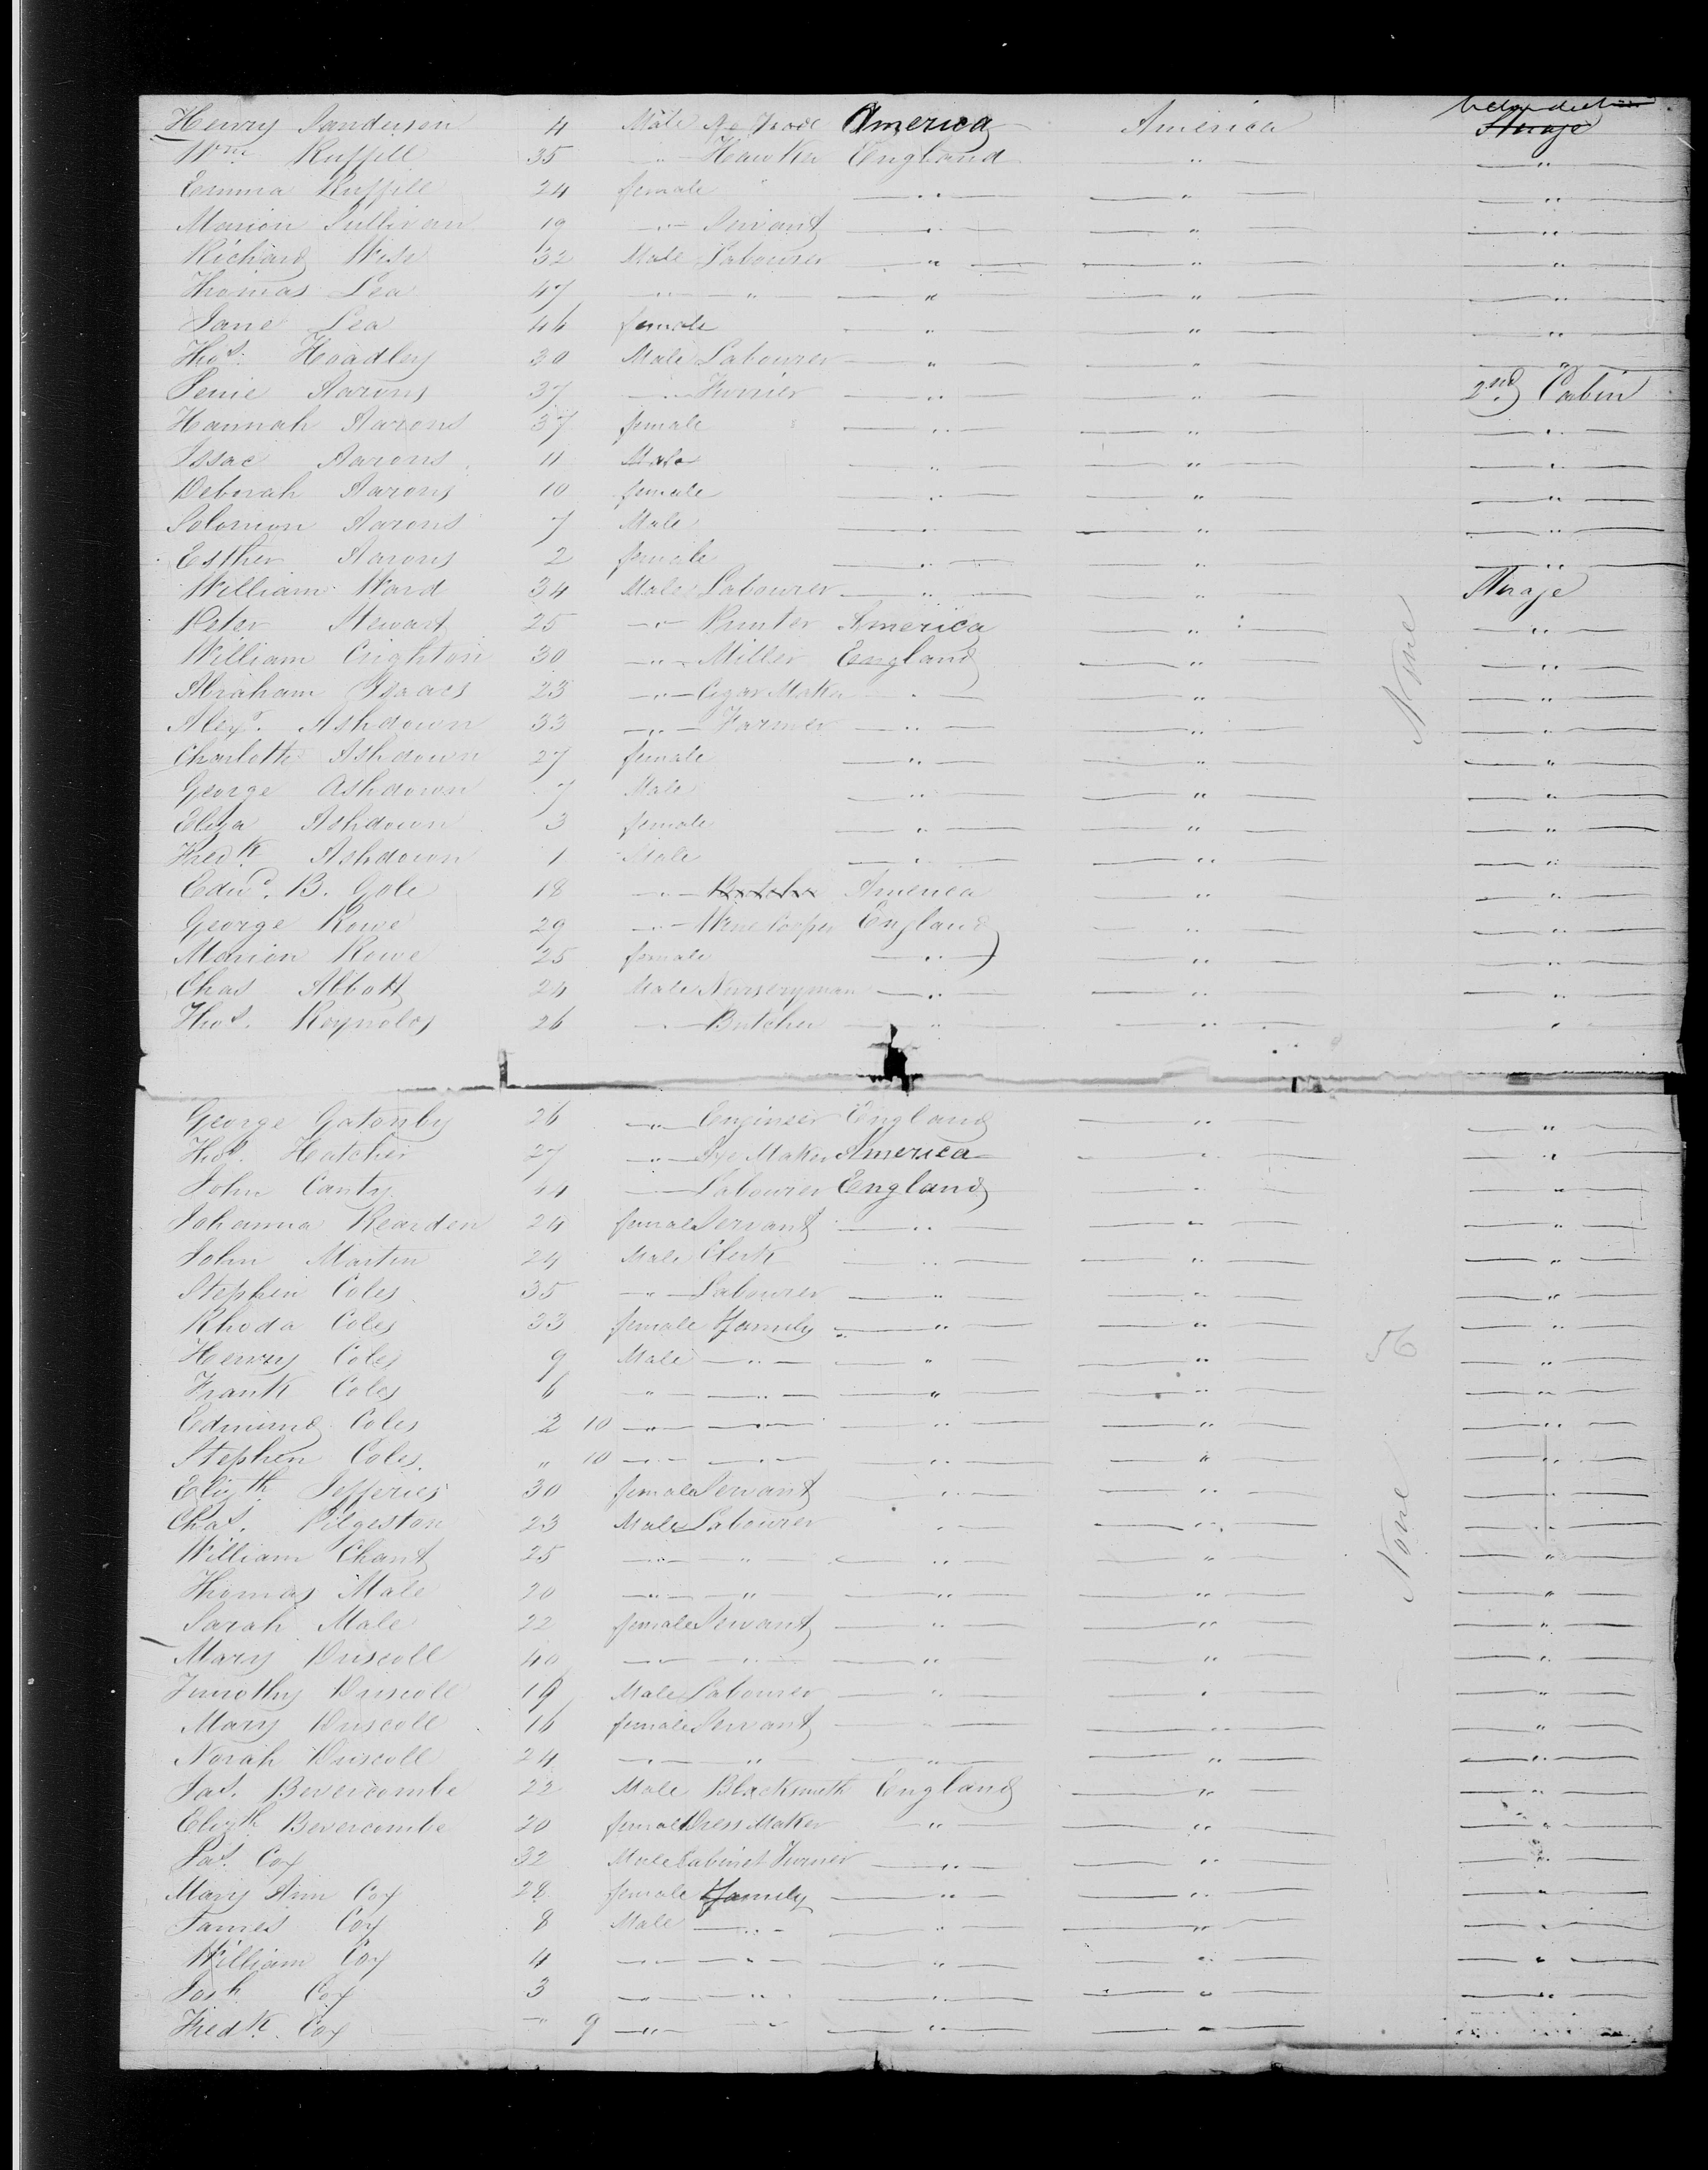 below deck
Henry Sanderson 4 Male No Trade America America Sterage
Wm Ruffill 35 " Hawker England " "
Emma Ruffill 24 female " " " "
Marion Sullivan 19 " Servant " " "
Richard Wise 32 Male Labourer " " "
Thomas Lea 47 " " " " "
Jane Lea 46 female " " "
Thos. Hoadley 30 Male Labourer " " "
Aarons 37 " Furrier " " 2nd Cabin
Hannah Aarons 37 female " " "
Issac Aarons 11 Male " " "
Deborah Aarons 10 female " " "
Solomon Aarons 7 Male " " "
Esther Aarons 2 female " " "
William Ward 34 Male Labourer " " Sterage
Peter Stewart 25 " Printer America " "
William Crighton 30 " Miller England " "
Abraham Isaacs 23 " Cigar Maker " " "
Alexr. Ashdown 33 " Farmer " " "
Charlotte Ashdown 27 female " " "
George Ashdown 7 Male " " "
Eliza Ashdown 3 female " " "
Fredk. Ashdown 1 Male " " "
Edwd. B. Gole 18 " Butcher America " "
George Rowe 29 " Wine Cooper England " "
Marion Rowe 25 female " " "
Chas Abbott 24 Male Nurseryman " " "
Thos. Reynolds 26 " Butcher " " "
None
George Gatenby 26 " Engineer England " "
Thos. Hatcher 27 " Maker America " "
John Canty 44 " Labourer England " "
Johanna Rearden 24 female Servant " " "
John Martin 24 Male Clerk " " "
Stephen Coles 35 " Labourer " " "
Rhoda Coles 33 female family " " "
Henry Coles 9 Male " " " "
Frank Coles 6 " " " " "
Edmund Coles 2 10 " " " " "
Stephen Coles " 10 " " " " "
Elizth Jefferies 30 female Servant " " "
Chas. Pilgeston 23 Male Labourer " " "
William Chant 25 " " " " "
Thomas Male 20 " " " " "
Sarah Male 22 female Servant " " "
Mary Driscoll 40 " " " " "
Timothy Driscoll 19 Male Labourer " " "
Mary Driscoll 16 female Servant " " "
Norah Driscoll 24 " " " " "
Jas. Bevercombe 22 Male Blacksmith England " "
Elizth Bevercombe 20 female Dress Maker " " "
Jas. Cox 32 Male Cabinet Turner " " "
Mary Ann Cox 28 female family " " "
James Cox 8 Male " " " "
William Cox 4 " " " " "
Josh Cox 3 " " " " "
Fredk. Cox " 9 " " " " "
56
None